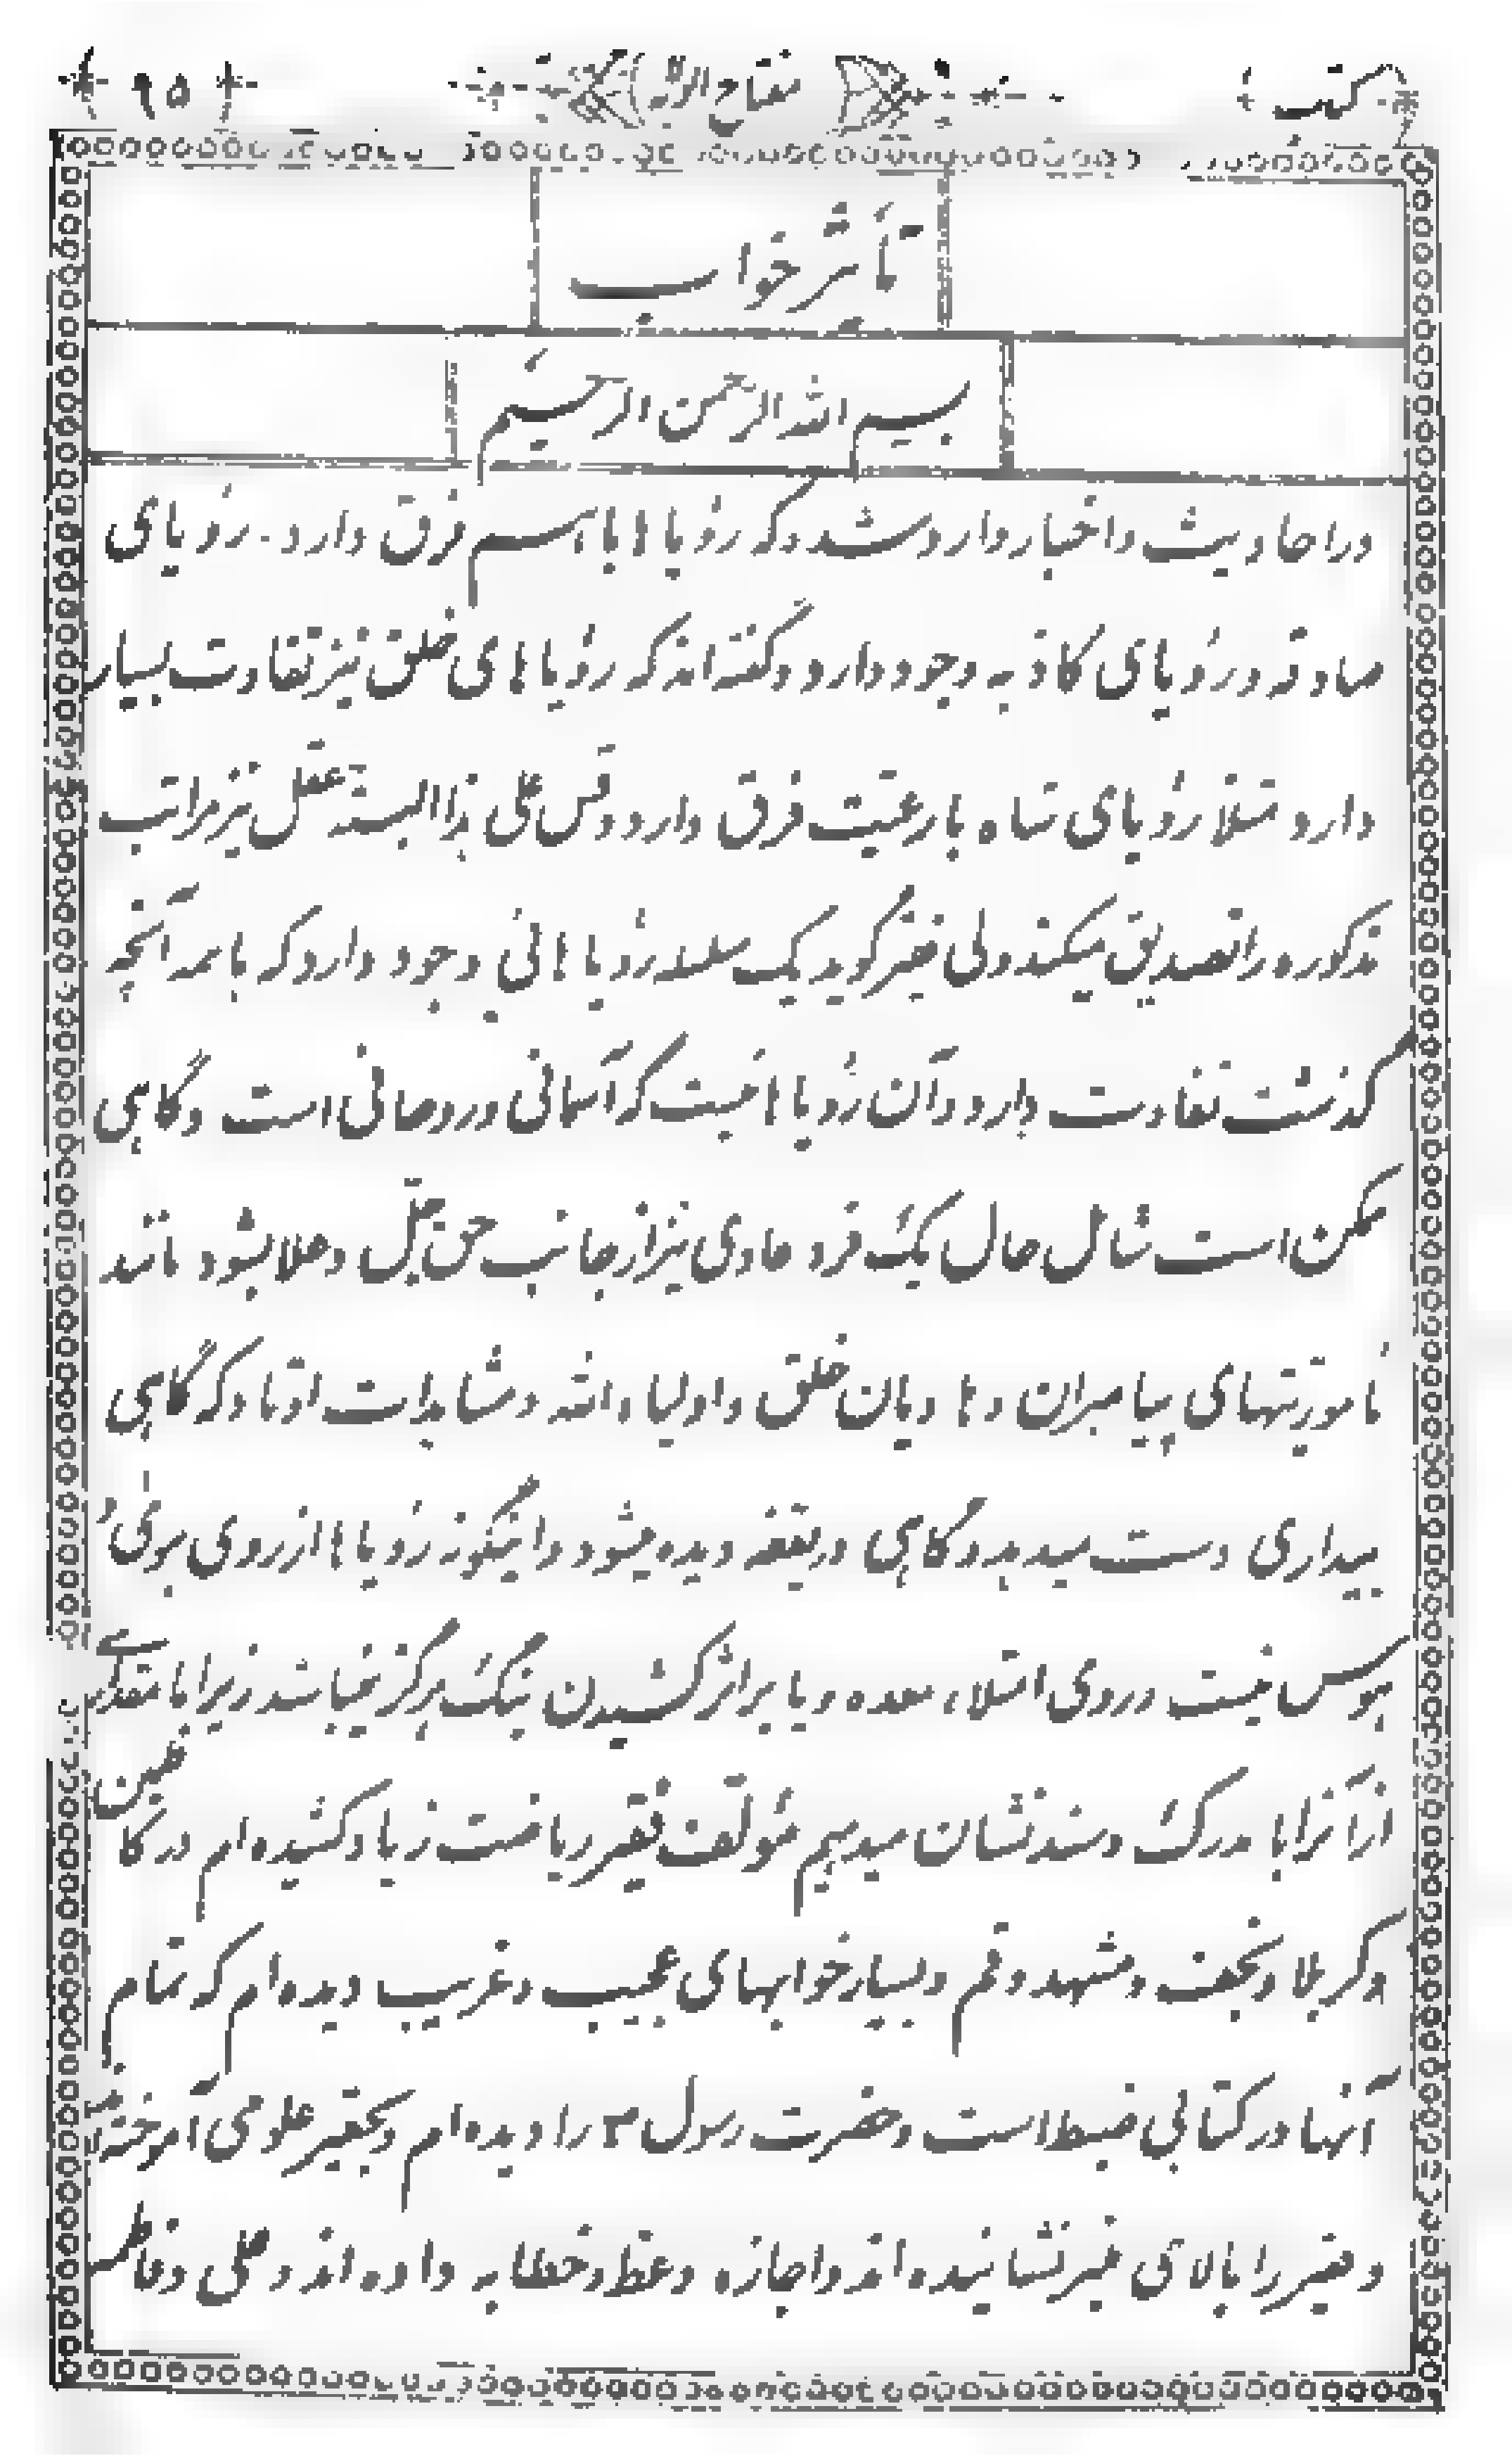 کتب مفتاح ۹۵
تأثیر خواب
بسم الله الرحمن الرحیم
در احادیث و اخبار وارد شده که رؤیاها با هم فرق دارد. رؤیای
صادقه و رؤیای کاذبه وجود دارد و گفته‌اند که رؤیاهای خلق نیز تفاوت بسیار
دارد مثلا رؤیای شاه با رعیت فرق دارد و قس علی هذا البته عقل نیز مراتب
مذکوره را تصدیق میکند ولی فقیر گوید یک سلسله رؤیاهائی وجود دارد که با همه آنچه
گذشت تفاوت دارد و آن رؤیاهائیست که آسمانی و روحانی است و گاهی
ممکن است شامل حال یک فرد عادی نیز از جانب حق جل و علا بشود مانند
مأموریتهای پیامبران و هادیان خلق و اولیاء الله و مشاهدات اوتاد که گاهی
بیداری دست میدهد و گاهی در یقظه دیده میشود و اینگونه رؤیاها از روی هوی و
هوس نیست و روی امتلاء معده و یا بر اثر کشیدن بنگ هرگز نمیباشد زیرا ما مقداری
از آنرا با مدرک و سند نشان میدهیم مؤلف فقیر ریاضت زیاد کشیده‌ام در کاظمین
و کربلا و نجف و مشهد و قم و بسیار خوابهای عجیب و غریب دیده‌ام که تمام
آنها در کتابی ضبط است و حضرت رسول ص را دیده‌ام و بحقیر علومی آموخته
و فقیر را بالای منبر نشانیده‌اند و اجازه وعظ و خطابه داده‌اند و علی و فاطمه